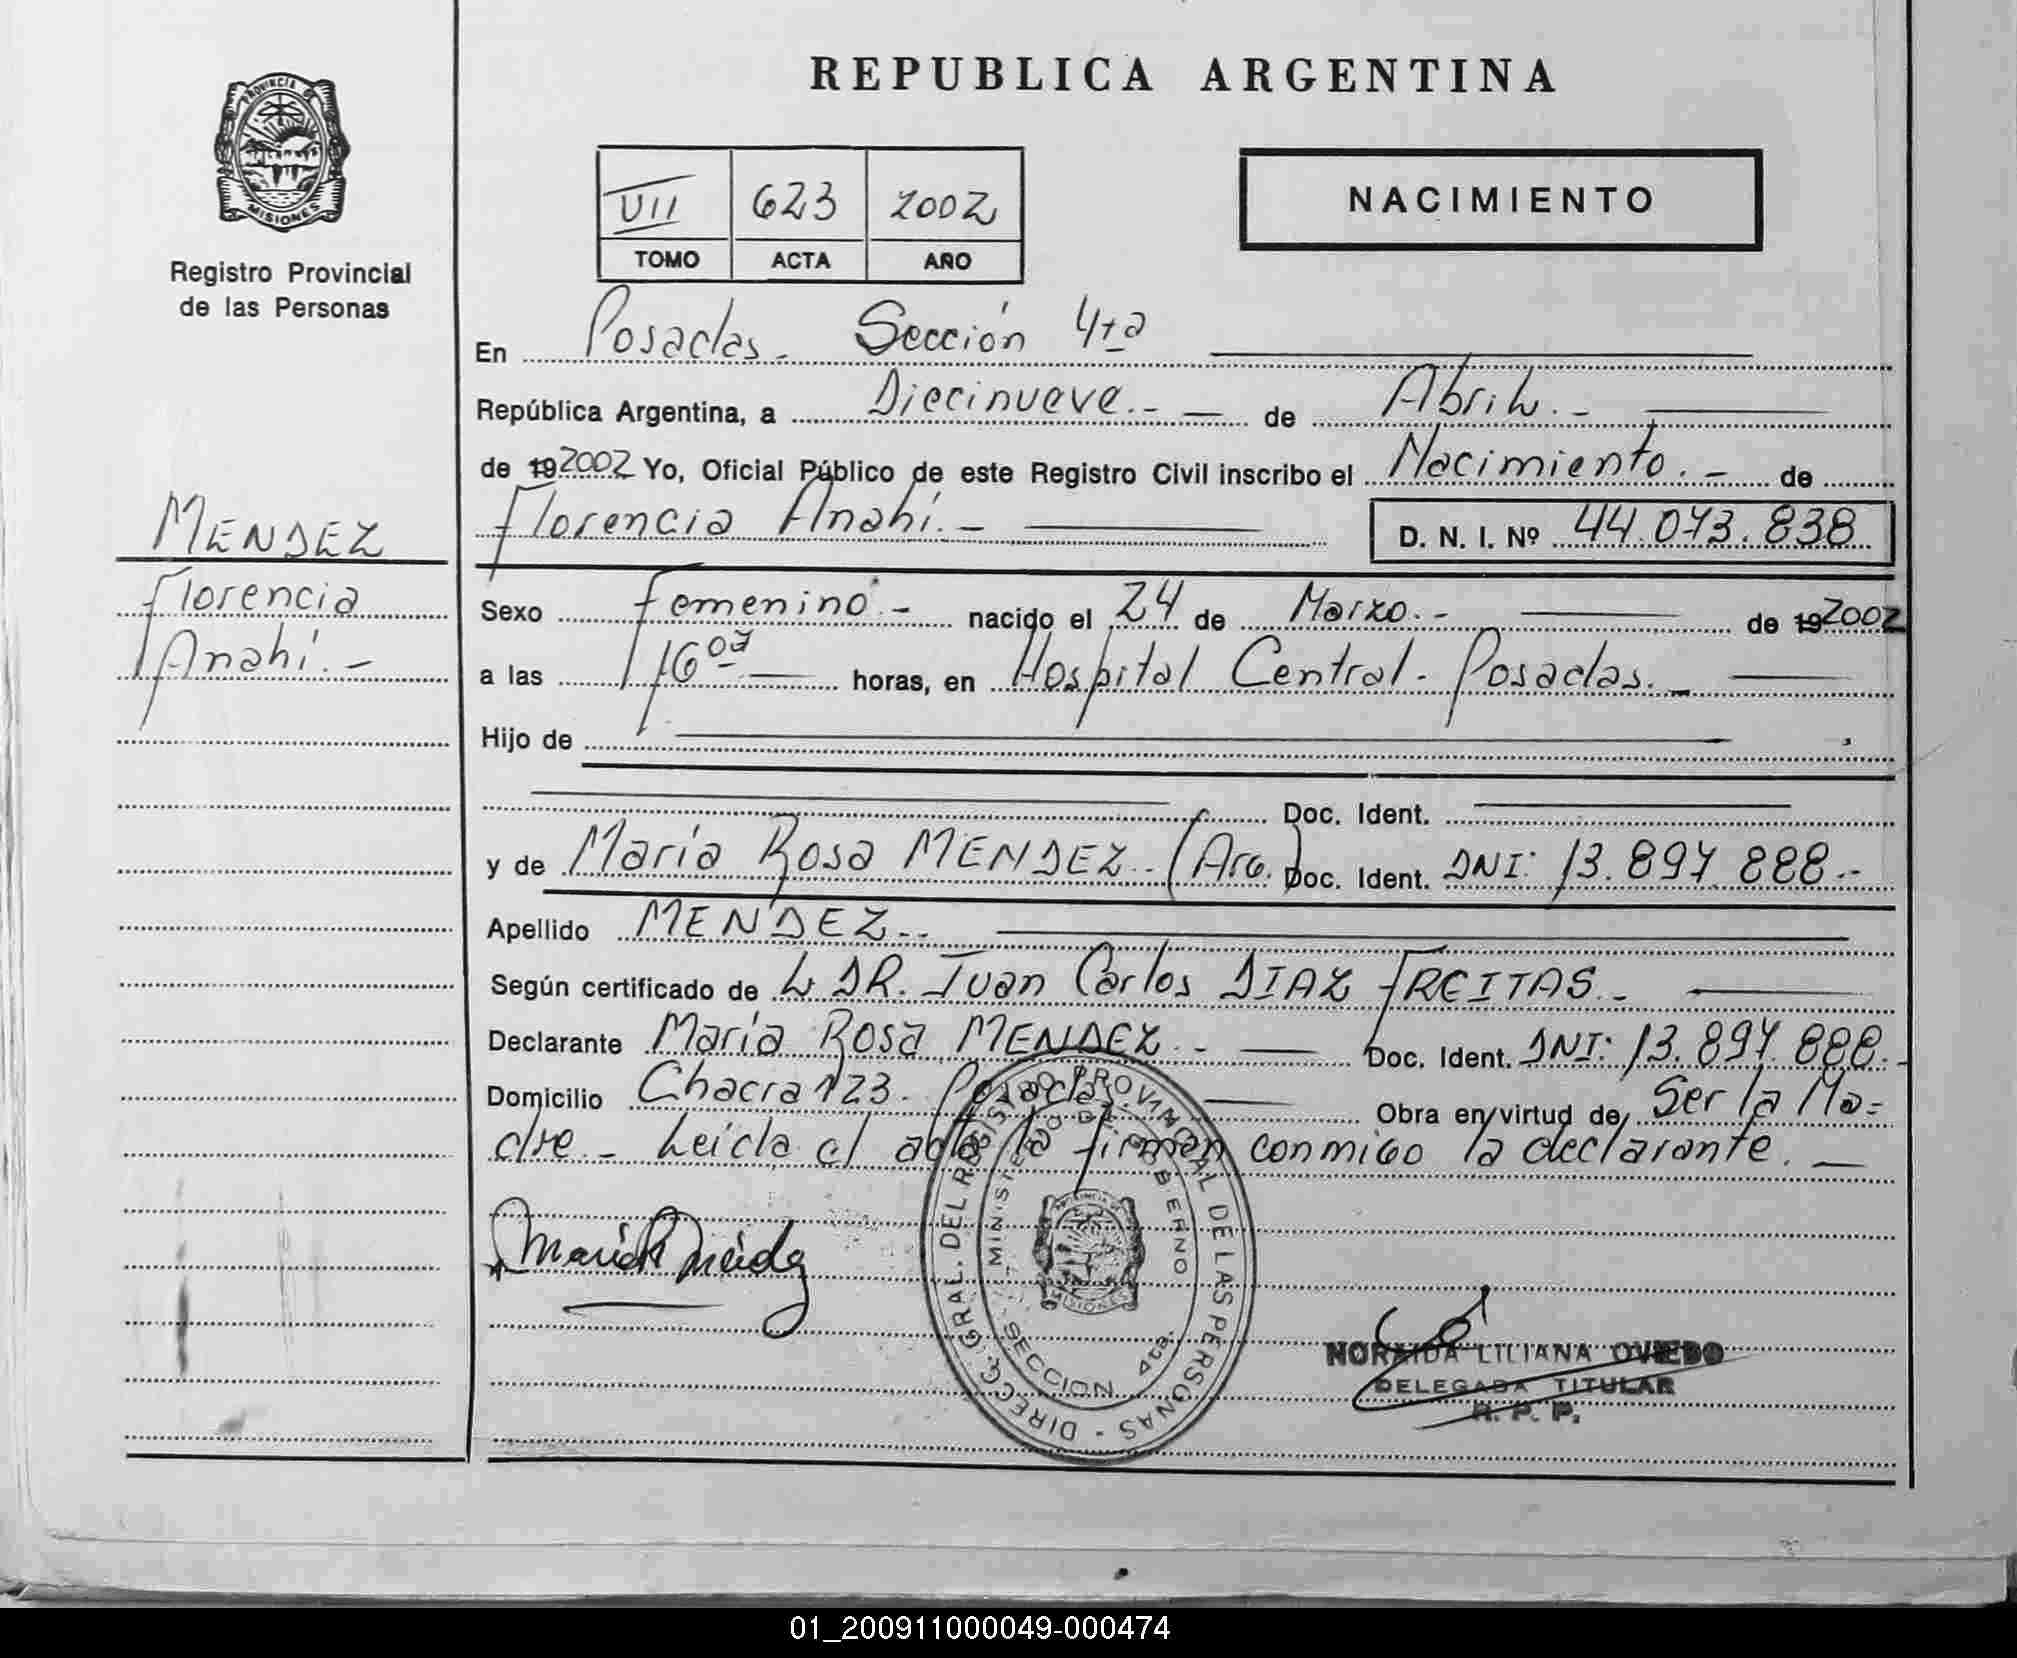 REPUBLICA ARGENTINA
PROVINCIA DE
MISIONES
Registro Provincial
de las Personas
VII 623 2002
TOMO ACTA AÑO
NACIMIENTO
En Posadas.- Sección 4ta
República Argentina, a Diecinueve.- de Abril.-
de 19 2002 Yo, Oficial Público de este Registro Civil inscribo el Nacimiento.- de
MENDEZ
Florencia Anahí.- D. N. I. Nº 44.073.838
Florencia
Anahí.-
Sexo femenino.- nacido el 24 de Marzo.- de 19 2002
a las 16 07 horas, en Hospital Central. Posadas.-
Hijo de
Doc. Ident.
y de María Rosa MENDEZ.. (Arg.) Doc. Ident. DNI: 13.897.888.-
Apellido MENDEZ..
Según certificado de L DR. Juan Carlos DIAZ FREITAS.-
Declarante María Rosa MENDEZ.- Doc. Ident. DNI: 13.897.888.-
Domicilio Chacra 123. Posadas. Obra en virtud de Ser la Ma=
dre.- Leída el acta la firman conmigo la declarante.-
María R Méndez
DIRECC. GRAL. DEL REGISTRO PROVINCIAL DE LAS PERSONAS -
MINISTERIO DE GOBIERNO
SECCION 4ta.
PROVINCIA DE
MISIONES
NORAIDA LILIANA OVIEDO
DELEGADA TITULAR
R. P. P.
01_200911000049-000474